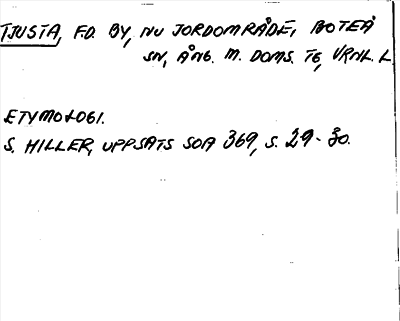 TJUSTA, F.D. BY, NU JORDOMRÅDE, BOTEÅ
SN, ÅNG. M. DOMS. TG, VRNL. L.
ETYMOLOGI.
S. HILLER, UPPSATS SOA 369, S. 29-30.